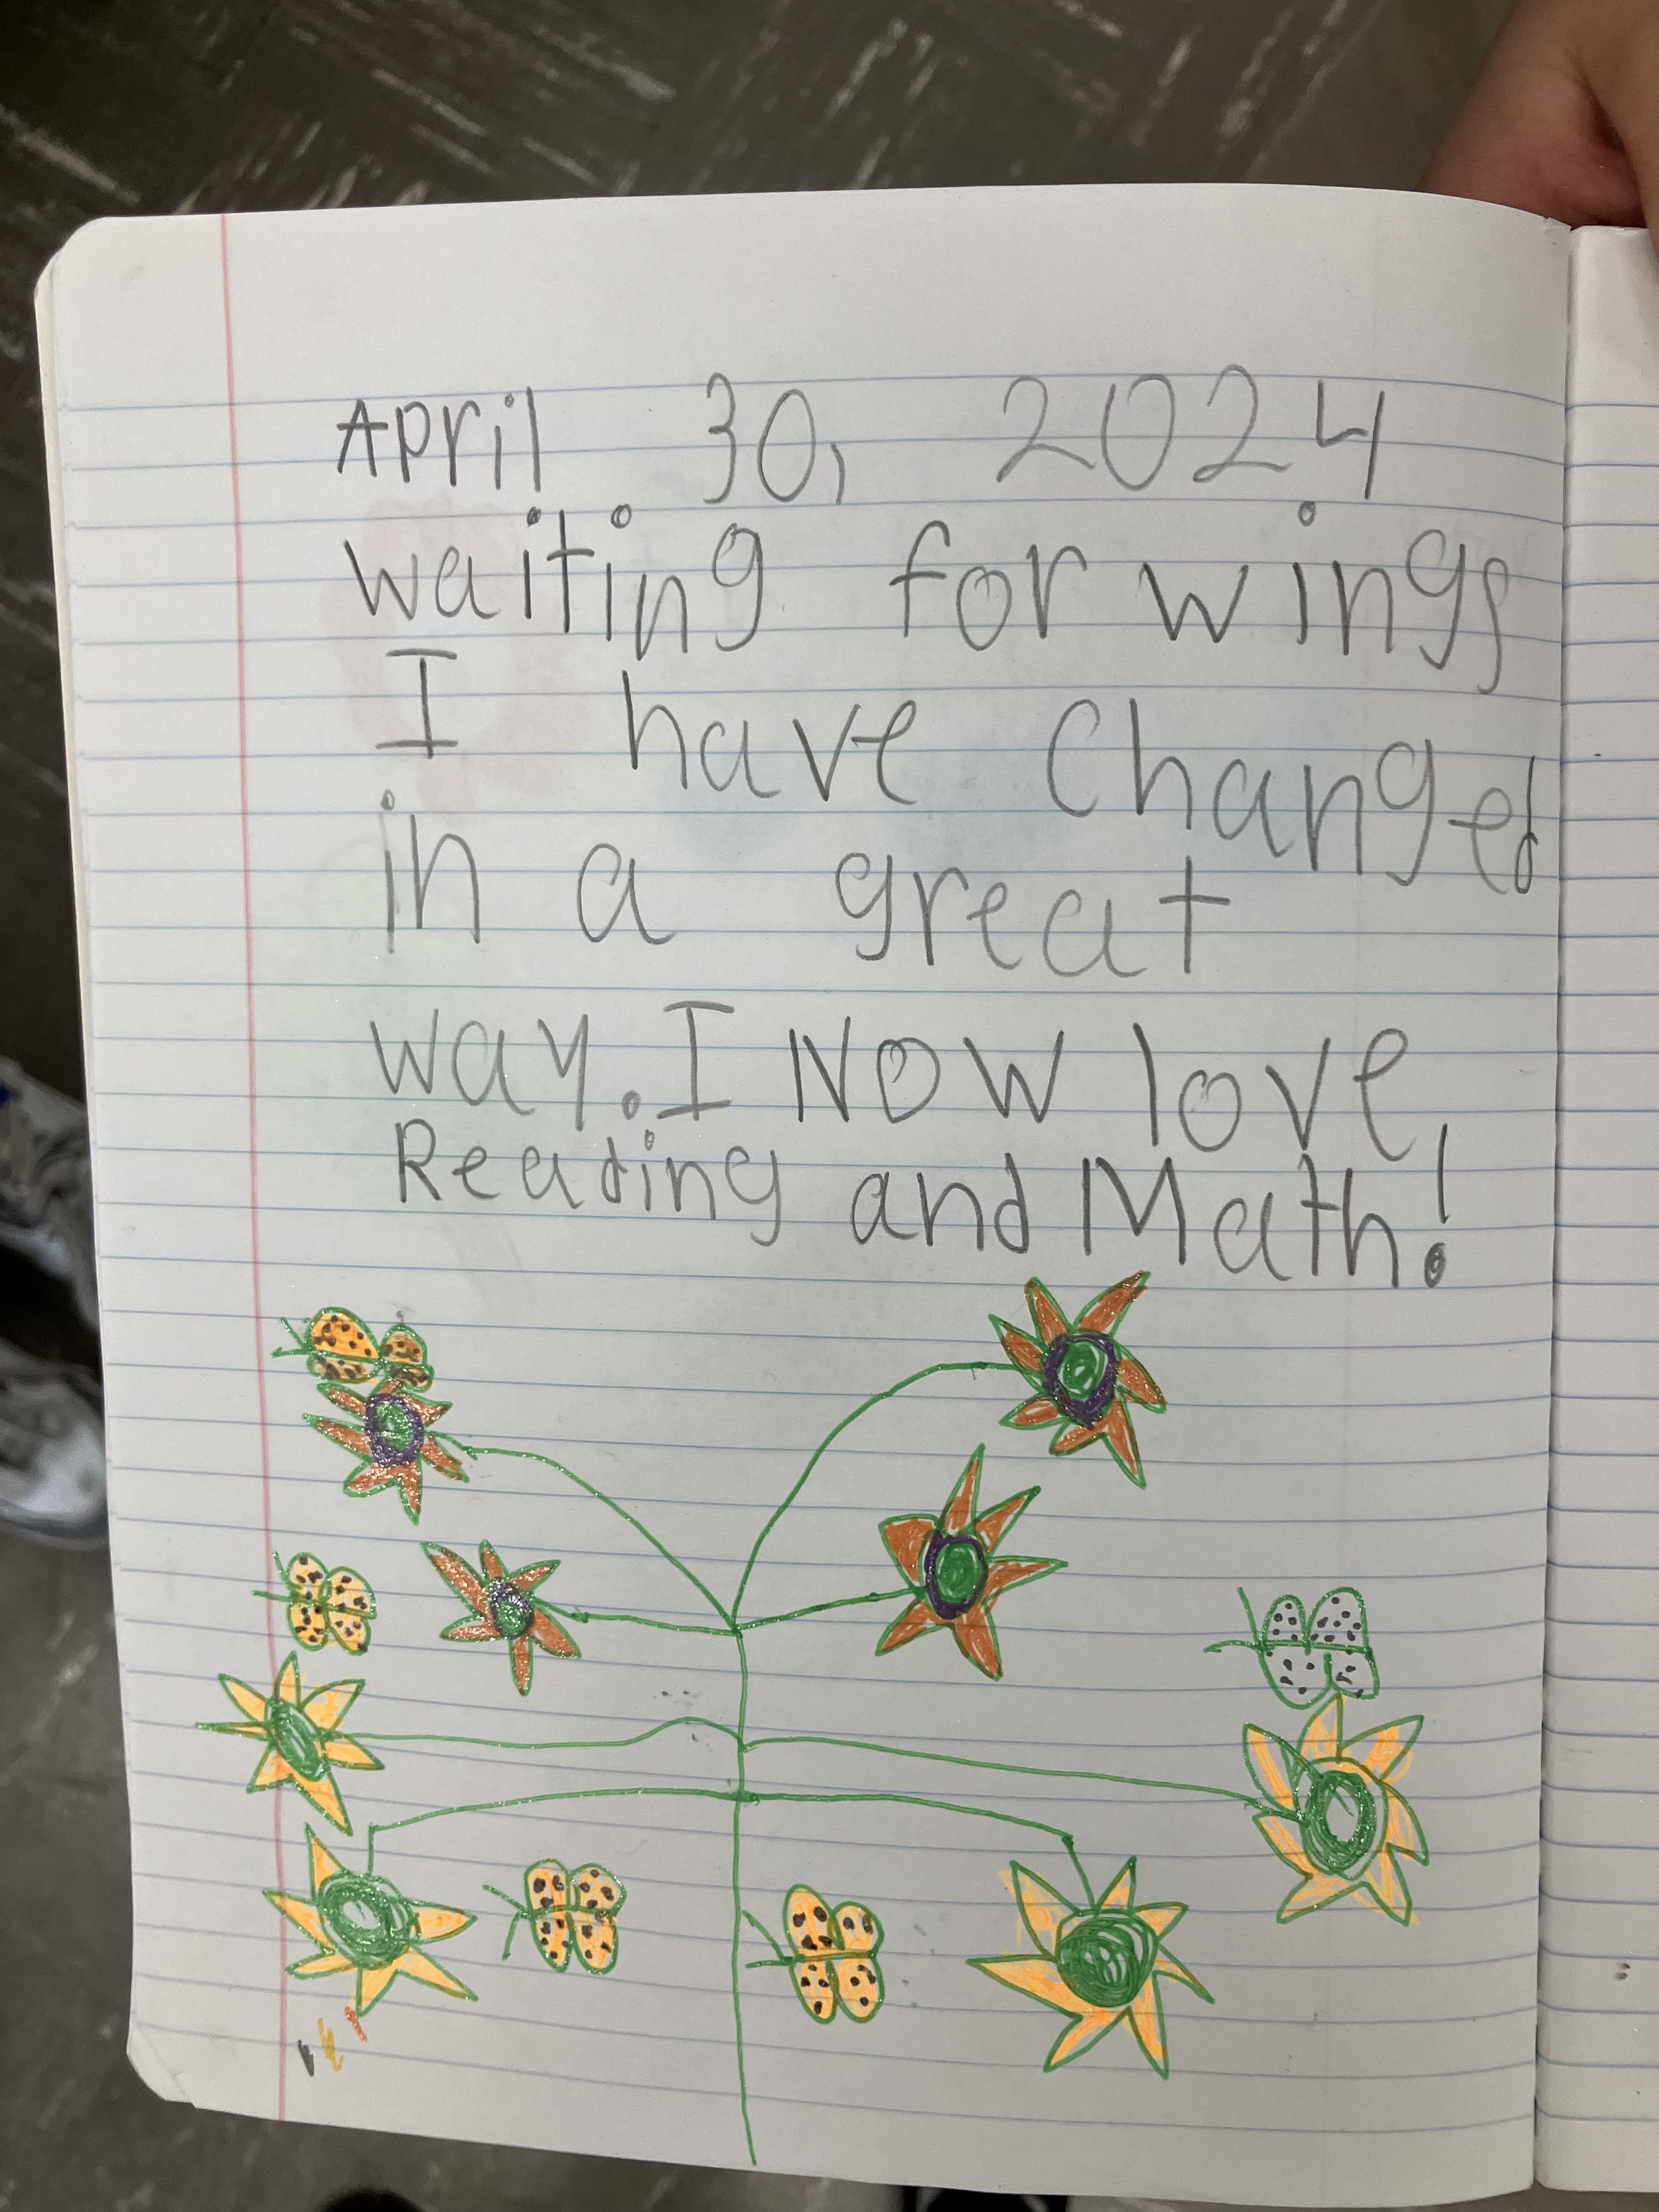 April 30, 2024
waiting for wings
I have changed
in a great
way. I Now love,
Reading and Math!